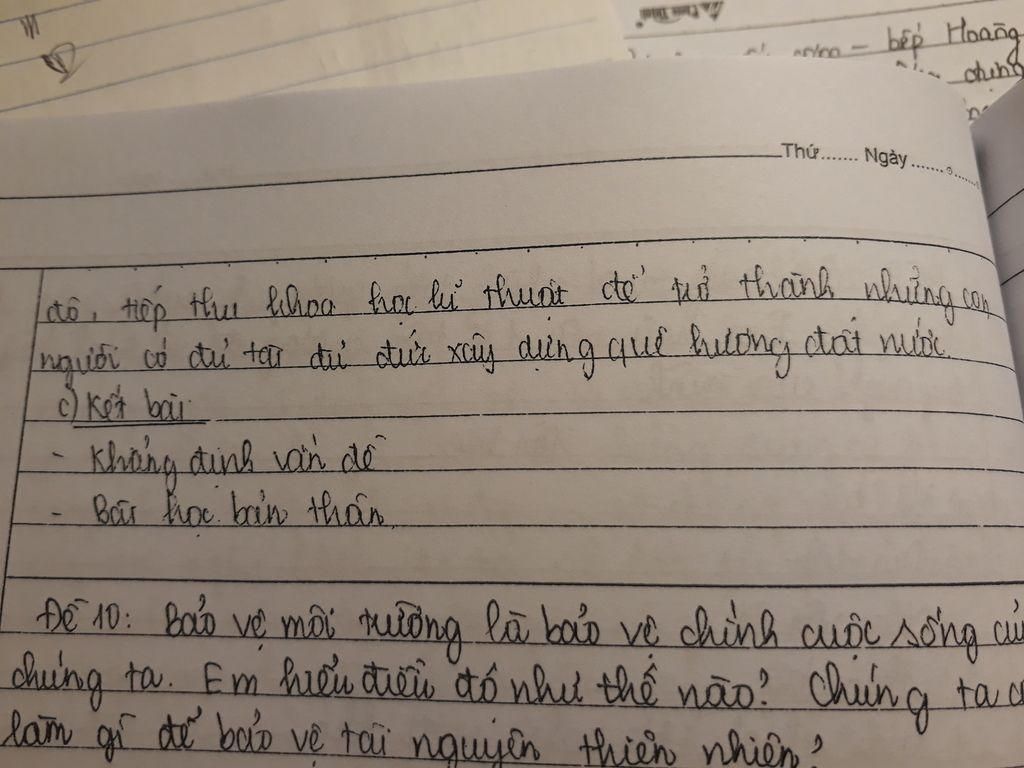 bếp Hoàng
chứng
Thứ....... Ngày..............
đó, tiếp thu khoa học kĩ thuật để trở thành những con
người có đủ tài đủ đức xây dựng quê hương đất nước.
c) Kết bài
- Khẳng định vấn đề
- Bài học bản thân.
Đề 10: Bảo vệ môi trường là bảo vệ chính cuộc sống củ
chúng ta. Em hiểu điều đó như thế nào? Chúng ta c
làm gì để bảo vệ tài nguyên thiên nhiên?